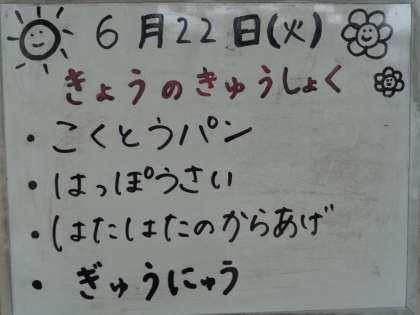 6月22日(火)
きょうのきゅうしょく
・こくとうパン
・はっぽうさい
・はたはたのからあげ
・ぎゅうにゅう